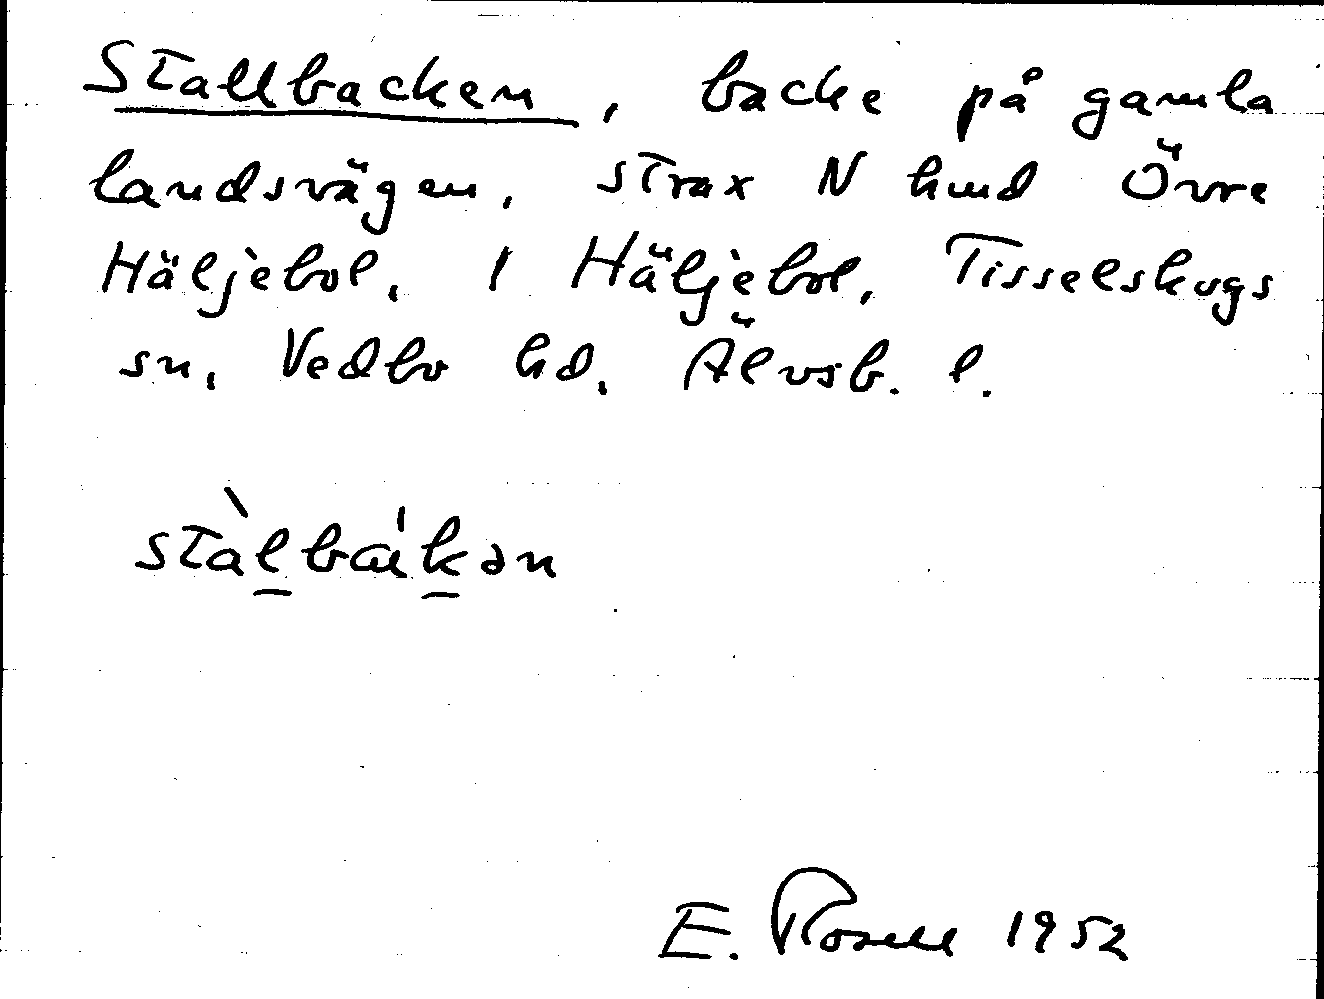 Stallbacken, backe på gamla
landsvägen, strax N hmd Övre
Häljebol. I Häljebol, Tisselskogs
sn, Vedbo hd. Älvsb. l.
stàl̠bák̠ən
E. Rosell 1952